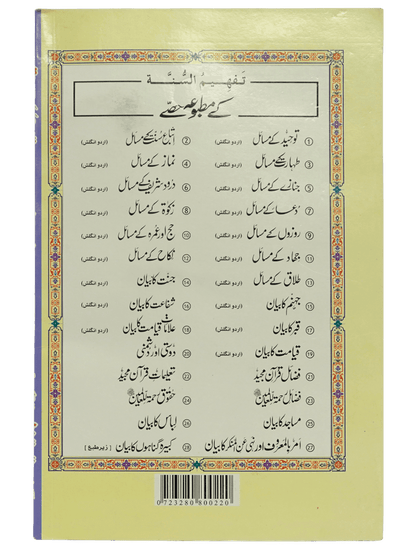 تَفهِيمُ السُّنَّة
کے مطبوعہ حصے
① توحید کے مسائل (اردو انگلش) ② اتباعِ سنت کے مسائل (اردو انگلش)
③ طہارت کے مسائل (اردو انگلش) ④ نماز کے مسائل (اردو انگلش)
⑤ جنازے کے مسائل (اردو انگلش) ⑥ درود شریف کے مسائل (اردو انگلش)
⑦ دعا کے مسائل (اردو انگلش) ⑧ زکوٰۃ کے مسائل (اردو انگلش)
⑨ روزوں کے مسائل (اردو انگلش) ⑩ حج اور عمرہ کے مسائل (اردو انگلش)
⑪ جہاد کے مسائل (اردو انگلش) ⑫ نکاح کے مسائل (اردو انگلش)
⑬ طلاق کے مسائل (اردو انگلش) ⑭ جنت کا بیان (اردو انگلش)
⑮ جہنم کا بیان (اردو انگلش) ⑯ شفاعت کا بیان (اردو انگلش)
⑰ قبر کا بیان (اردو انگلش) ⑱ علاماتِ قیامت کا بیان (اردو انگلش)
⑲ قیامت کا بیان (اردو انگلش) ⑳ دوستی اور دشمنی
㉑ فضائل قرآن مجید ㉒ تعلیماتِ قرآن مجید
㉓ فضائل رحمۃ للعالمین ㉔ حقوق رحمۃ للعالمین
㉕ مساجد کا بیان ㉖ لباس کا بیان
㉗ امر بالمعروف اور نہی عن المنکر کا بیان ㉘ کبیرہ گناہوں کا بیان [زیر طبع]
0723280800220